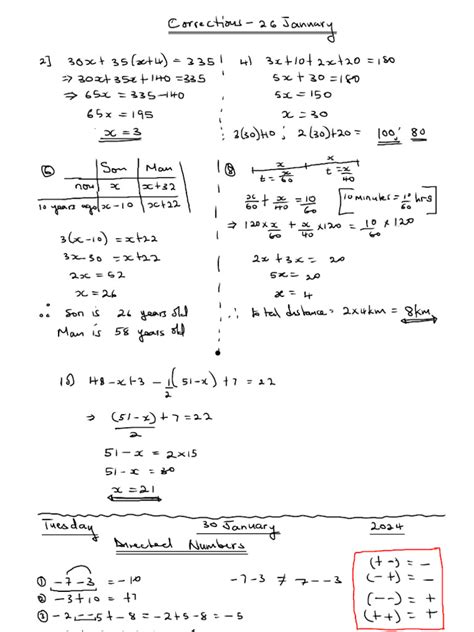 Corrections - 26 January
2] 30x + 35(x+4) = 335
⇒ 30x + 35x + 140 = 335
⇒ 65x = 335 - 140
65x = 195
x = 3
4) 3x + 10 + 2x + 20 = 180
5x + 30 = 180
5x = 150
x = 30
3(30)+10 ; 2(30)+20 = 100; 80
⑥ Son Man
now x x+32
10 years ago x-10 x+22
3(x-10) = x+22
3x-30 = x+22
2x = 52
x = 26
∴ Son is 26 years old
Man is 58 years old
⑧ x x
t = x/60 t = x/40
x/60 + x/40 = 10/60 [10 minutes = 10/60 hrs]
⇒ 120 × x/60 + x/40 × 120 = 10/60 × 120
2x + 3x = 20
5x = 20
x = 4
∴ total distance = 2×4km = 8km
10) 48 - x + 3 - 1/2(51-x) + 7 = 22
⇒ (51-x)/2 + 7 = 22
51 - x = 2×15
51 - x = 30
x = 21
Tuesday 30 January 2024
Directed Numbers
① -7-3 = -10 -7-3 ≠ 7--3
② -3+10 = +7
③ -2--5+-8 = -2+5-8 = -5
(+-) = -
(-+) = -
(--) = +
(++) = +